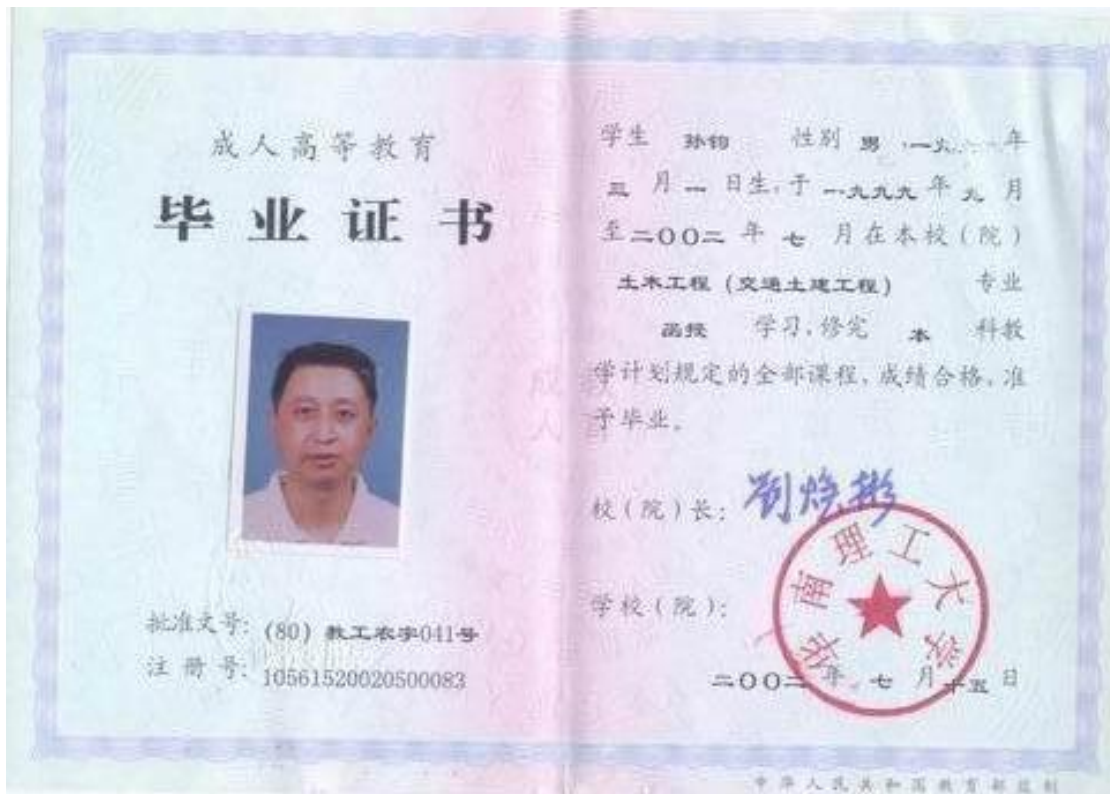 成人高等教育
毕业证书
批准文号: (80) 教工农字041号
注册号: 10561520020500083
学生 孙钧 性别 男，一九六一年
三月一日生，于一九九九年九月
至二〇〇二年七月在本校（院）
土木工程（交通土建工程） 专业
函授 学习，修完 本 科教
学计划规定的全部课程，成绩合格，准
予毕业。
校（院）长: 刘焕彬
学校（院）:
华南理工大学
二〇〇二年七月十五日
中华人民共和国教育部监制